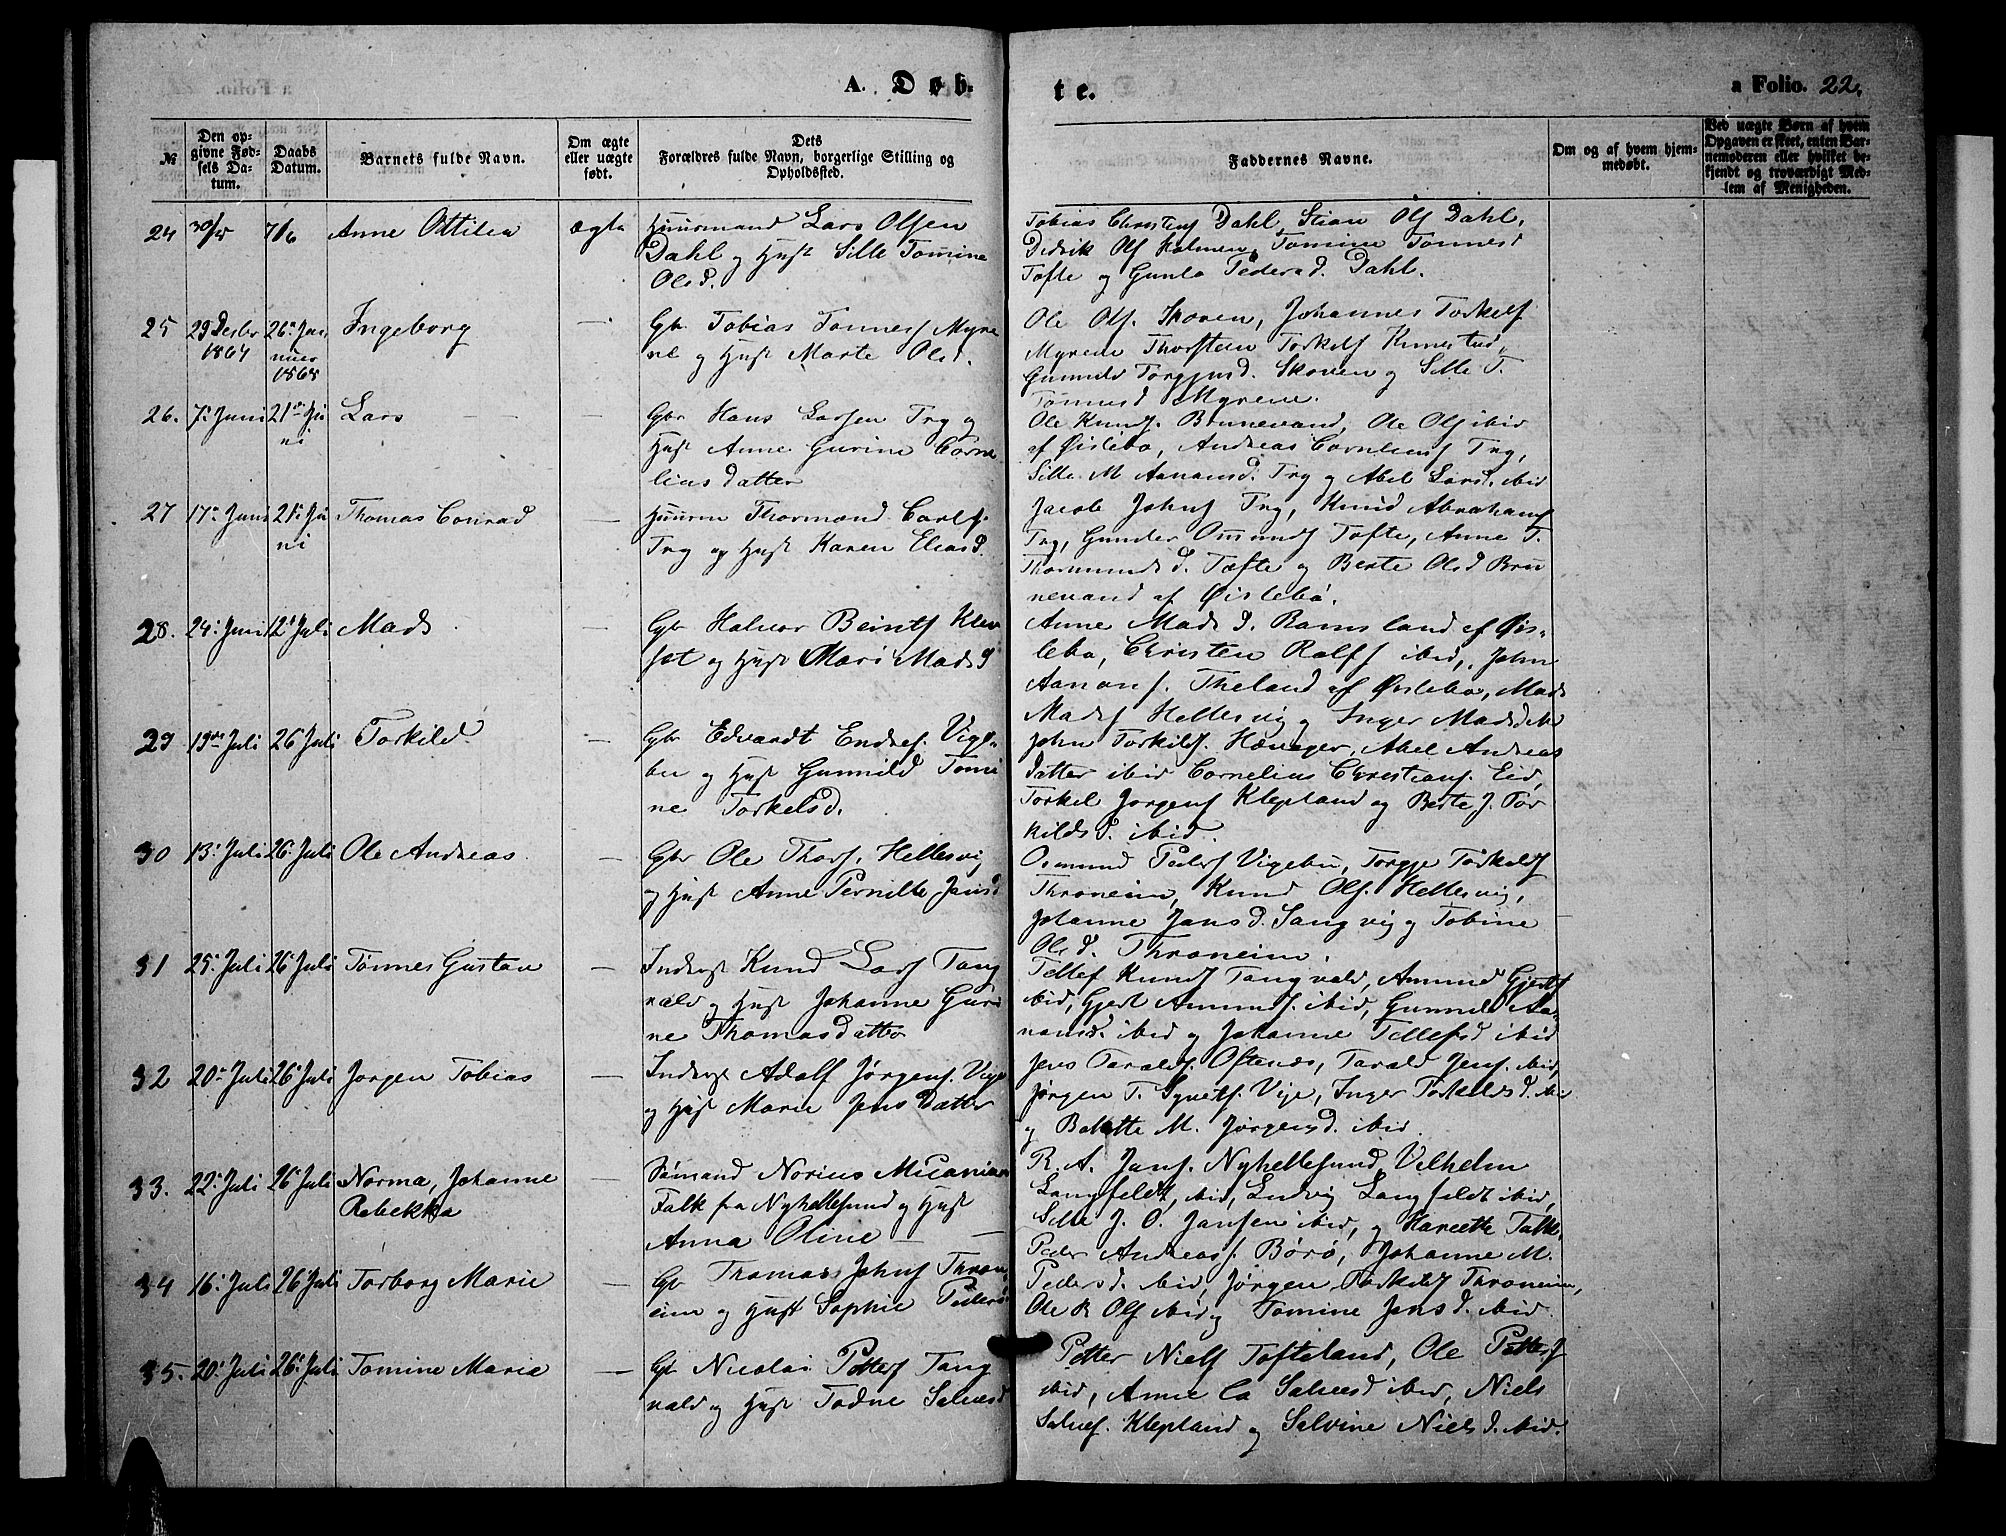 A. Døb-
te.
a Folio. 22.
№
Den opgivne Fødsels Datum.
Daabs Datum.
Barnets fulde Navn.
Om ægte eller uægte født.
Dets Forældres fulde Navn, borgerlige Stilling og Opholdssted.
Faddernes Navne.
Om og af hvem hjemmedøbt.
Ved uægte Børn af hvem Opgaven er skeet, enten Barnemoderen eller hvilket bekjendt og troværdigt Medlem af Menigheden.
24 30/5 7/6 Anne Ottilea ægte Huusmand Lars Olsen
Dahl og Hust Sille Tomine
Olsd.
Tobias Christens Dahl, Stian Ols Dahl,
Didrik Ols Holmen, Tomine Tønnesd
Tofte og Gunla Pedersd. Dahl.
25 29 Desbr 1867 26 Januar 1868 Ingeborg — Gbr Tobias Tønness Myre
ne og Hust Marte Olsd.
Ole Ols. Skoven, Johannes Torkels
Myrene Thorsten Torkels Kunestad,
Gunnild Torgjusd. Skoven og Sille T.
Tønnesd Myrene.
26. 7 Juni 21 Juni Lars — Gbr Hans Larsen Try og
Hust Anne Gurine Corne
liusdatter
Ole Knuds. Brunevand, Ole Ols ibid
af Øislebø, Andreas Cornelius Try,
Sille M Aanansd. Try og Abel Larsd. ibid
27 17 Juni 21 Juni Thomas Conrad — Huusm Thormand Carls.
Try og Hust Karen Eliasd.
Jacob Johns Try, Knud Abrahams
Try, Gunder Omunds Tofte, Anne T.
Thormundsd. Tofte og Berte Olsd Bru
nevand af Øislebø.
28. 24 Juni 12 Juli Mads — Gbr Halvor Beints Klev
set og Hust Mari Madsd
Anne Madsd. Ramsland af Øis-
lebø, Christen Rolfs ibid, John
Aanans. Theland af Øislebø, Mads
Mads Hellesvig og Inger Madsd
29 19 Juli 26 Juli Torkild — Gbr Edvardt Endres. Vige-
bu og Hust Gunnild Tomi
ne Torkelsd.
John Torkilds. Hæaager, Abel Andreas
datter ibid Cornelius Christians. Eid,
Torkel Jørgens Klepland og Berte J. Tor
kildsd. ibid.
30 13 Juli 26 Juli Ole Andreas — Gbr Ole Thors. Hellesvig
og Hust Anne Pernille Jansd
Osmund Peders Vigebu, Torgje Torkels
Throneim, Knud Ols. Hellesvig,
Johanne Jansd. Sangvig og Tobine
Olsd. Throneim.
31 25 Juli 26 Juli Tønnes Gustav — Inderst Knud Lars Tang
vald og Hust Johanne Guri
ne Thomasdatter
Tellef Knuds Tangvald, Amund Gjerts
ibid, Gjert Amunds. ibid, Gunnild Aa-
nansd. ibid og Johanne Tellefsd ibid
32 20 Juli 26 Juli Jørgen Tobias — Inderst Adolf Jørgens. Vige
og Hust Marie Jensdatter
Jens Taralds. Oftenes, Tarald Jens. ibid,
Jørgen T. Syverts. Vije, Inger Torkildsd. ibid
og Bolette M. Jørgensd. ibid.
33. 22 Juli 26 Juli Norma, Johanne
Rebekka — Sømand Norius Micanian
Falk fra Nyhellesund og Hust
Anna Oline —
R. A. Jans. Nyhellesund, Vilhelm
Langfeldt, ibid, Ludvig Langfeldt ibid,
Sille J. O. Jansen ibid, og Hariette Falk.
34 16 Juli 26 Juli Torborg Marie — Gbr Thomas Johns Thron
eim og Hust Sophie Pedersd
Peder Andreass. Børø, Johanne M.
Pedersd. ibid, Jørgen Torkilds Throneim,
Ole R Ols ibid og Tomine Jensd. ibid
35. 20 Juli 26 Juli Tomine Marie — Gbr Nicolai Petters Tang
vald og Hust Todne Salvesd
Petter Niels Tofteland, Ole Petters
ibid, Anne Ca Salvesd ibid, Niels
Salves. Klepland og Salvine Nielsd. ibid.